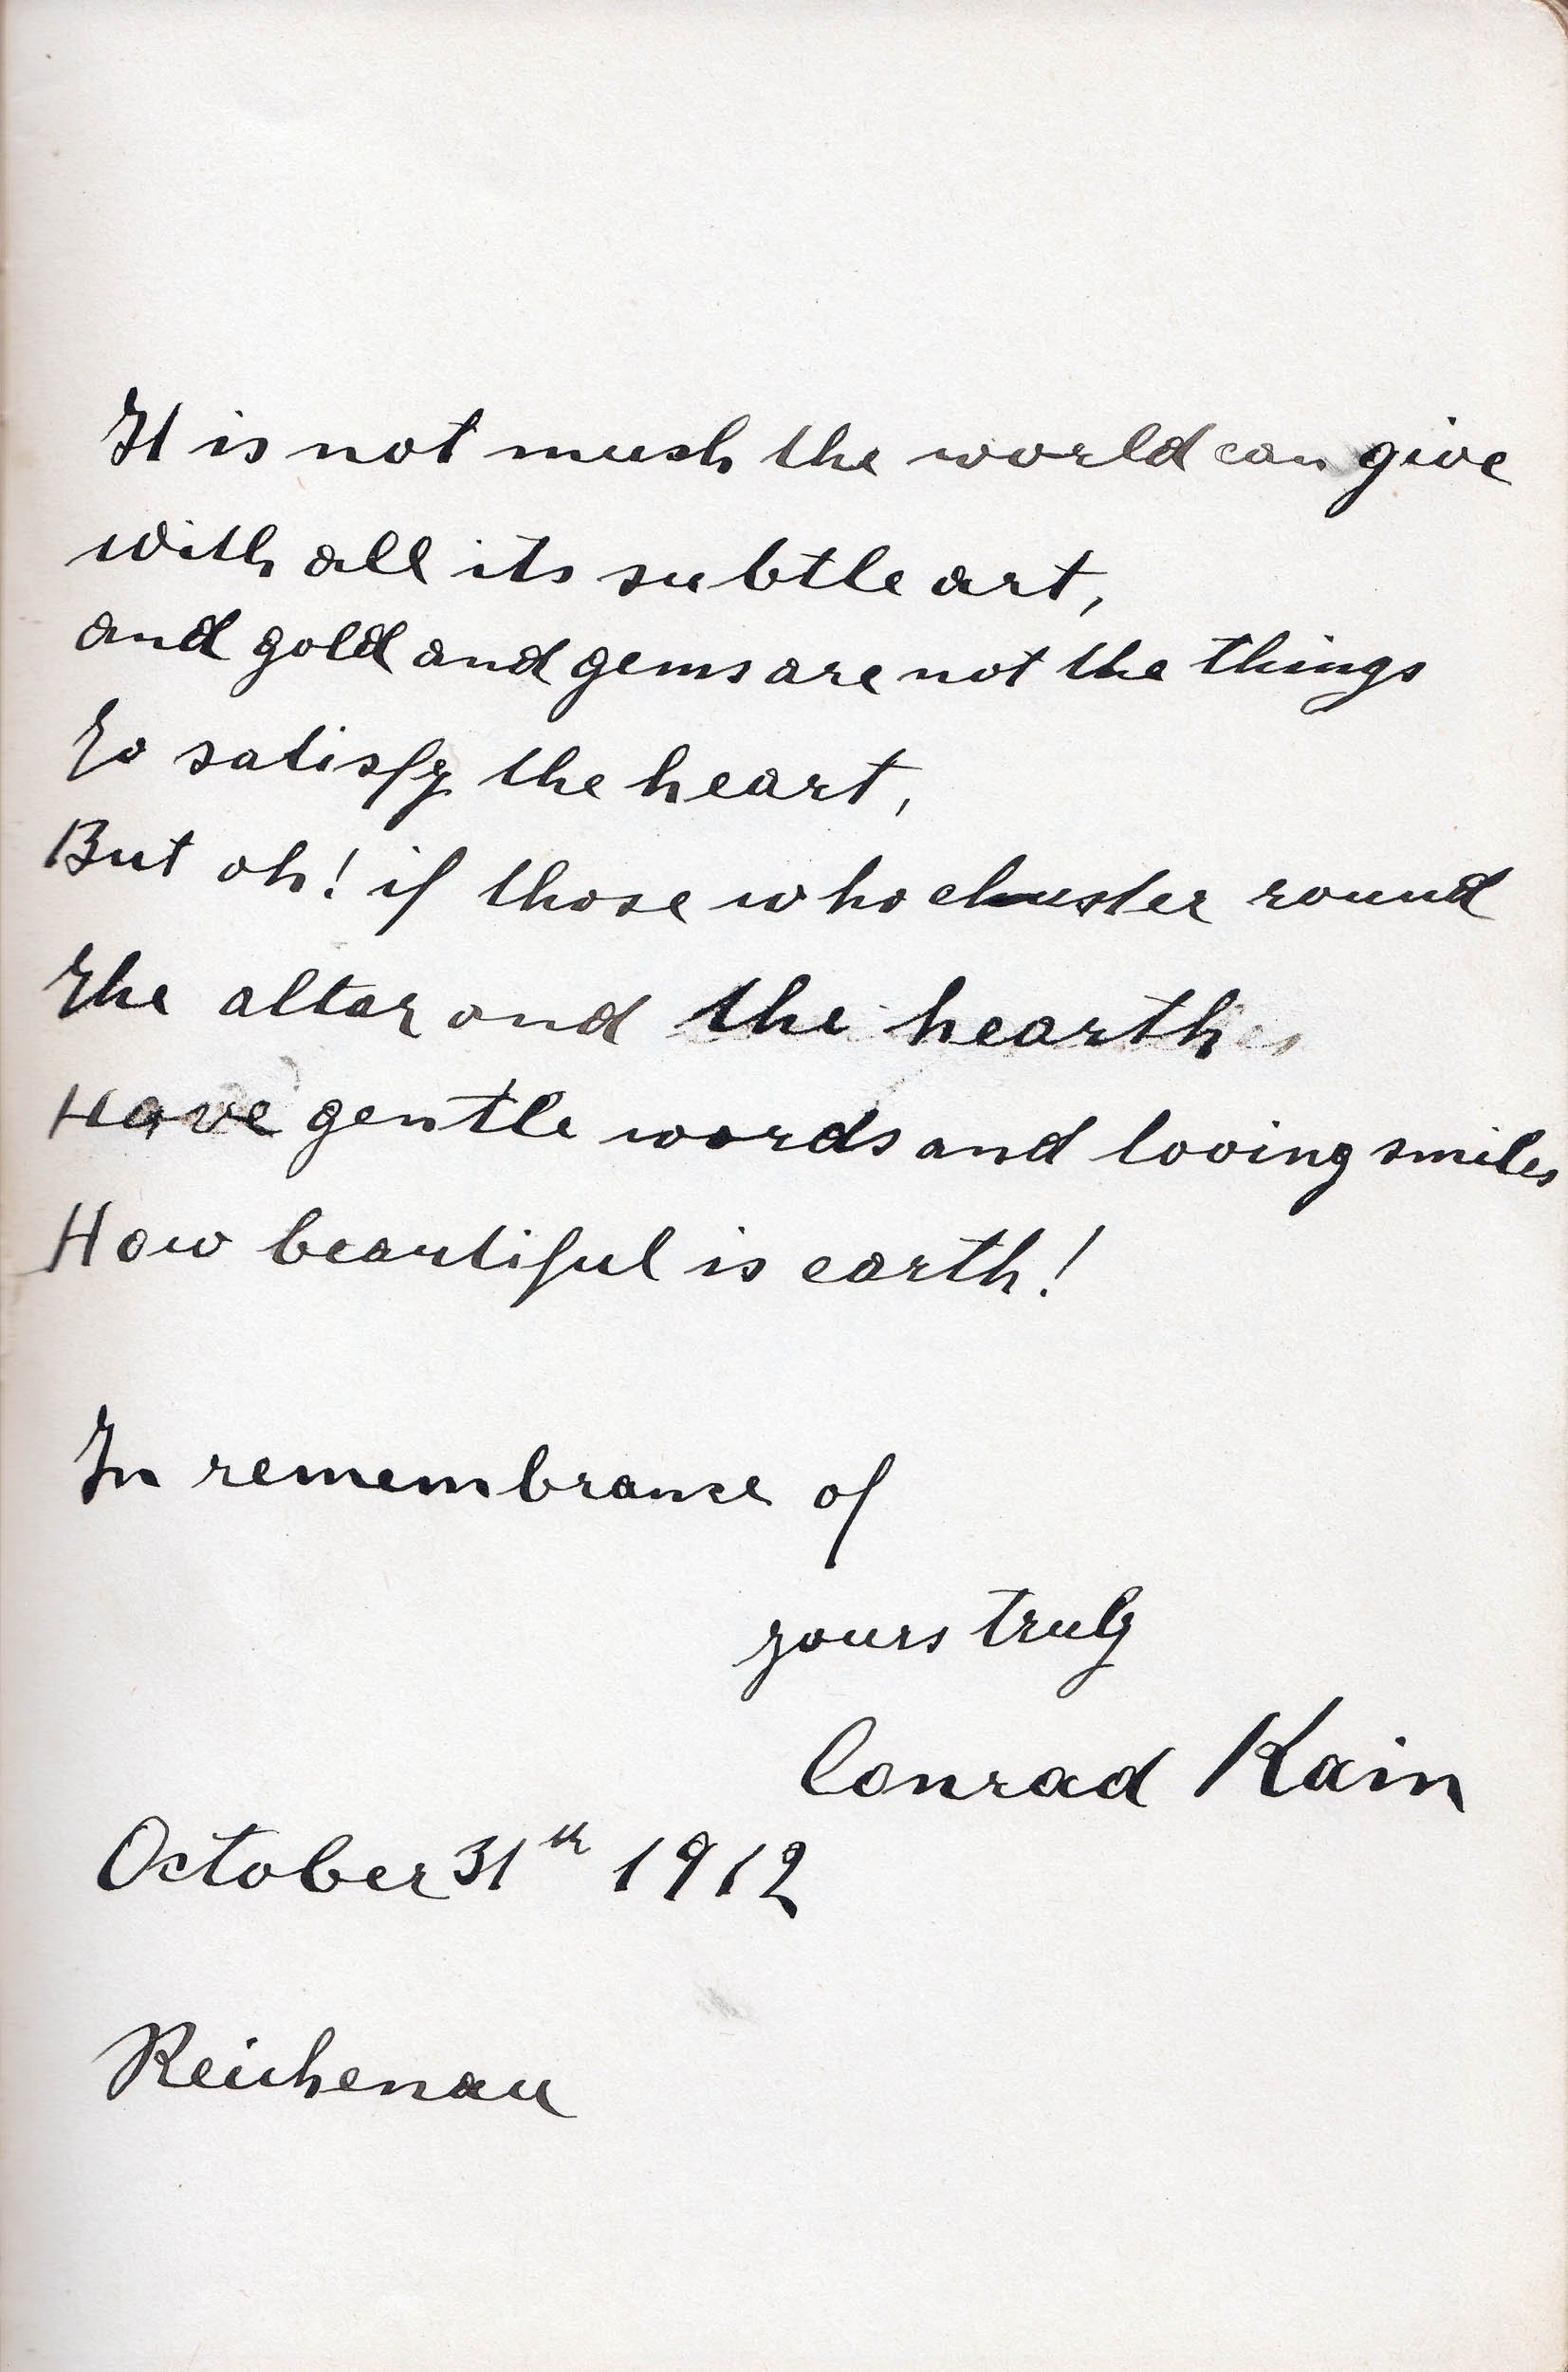 It is not much the world can give
with all its subtle art,
and gold and gems are not the things
To satisfy the heart,
But oh! if those who cluster round
The altar and the hearth
Have gentle words and loving smiles
How beautiful is earth!
In remembrance of
yours truly
Conrad Kain
October 31th 1912
Reichenau